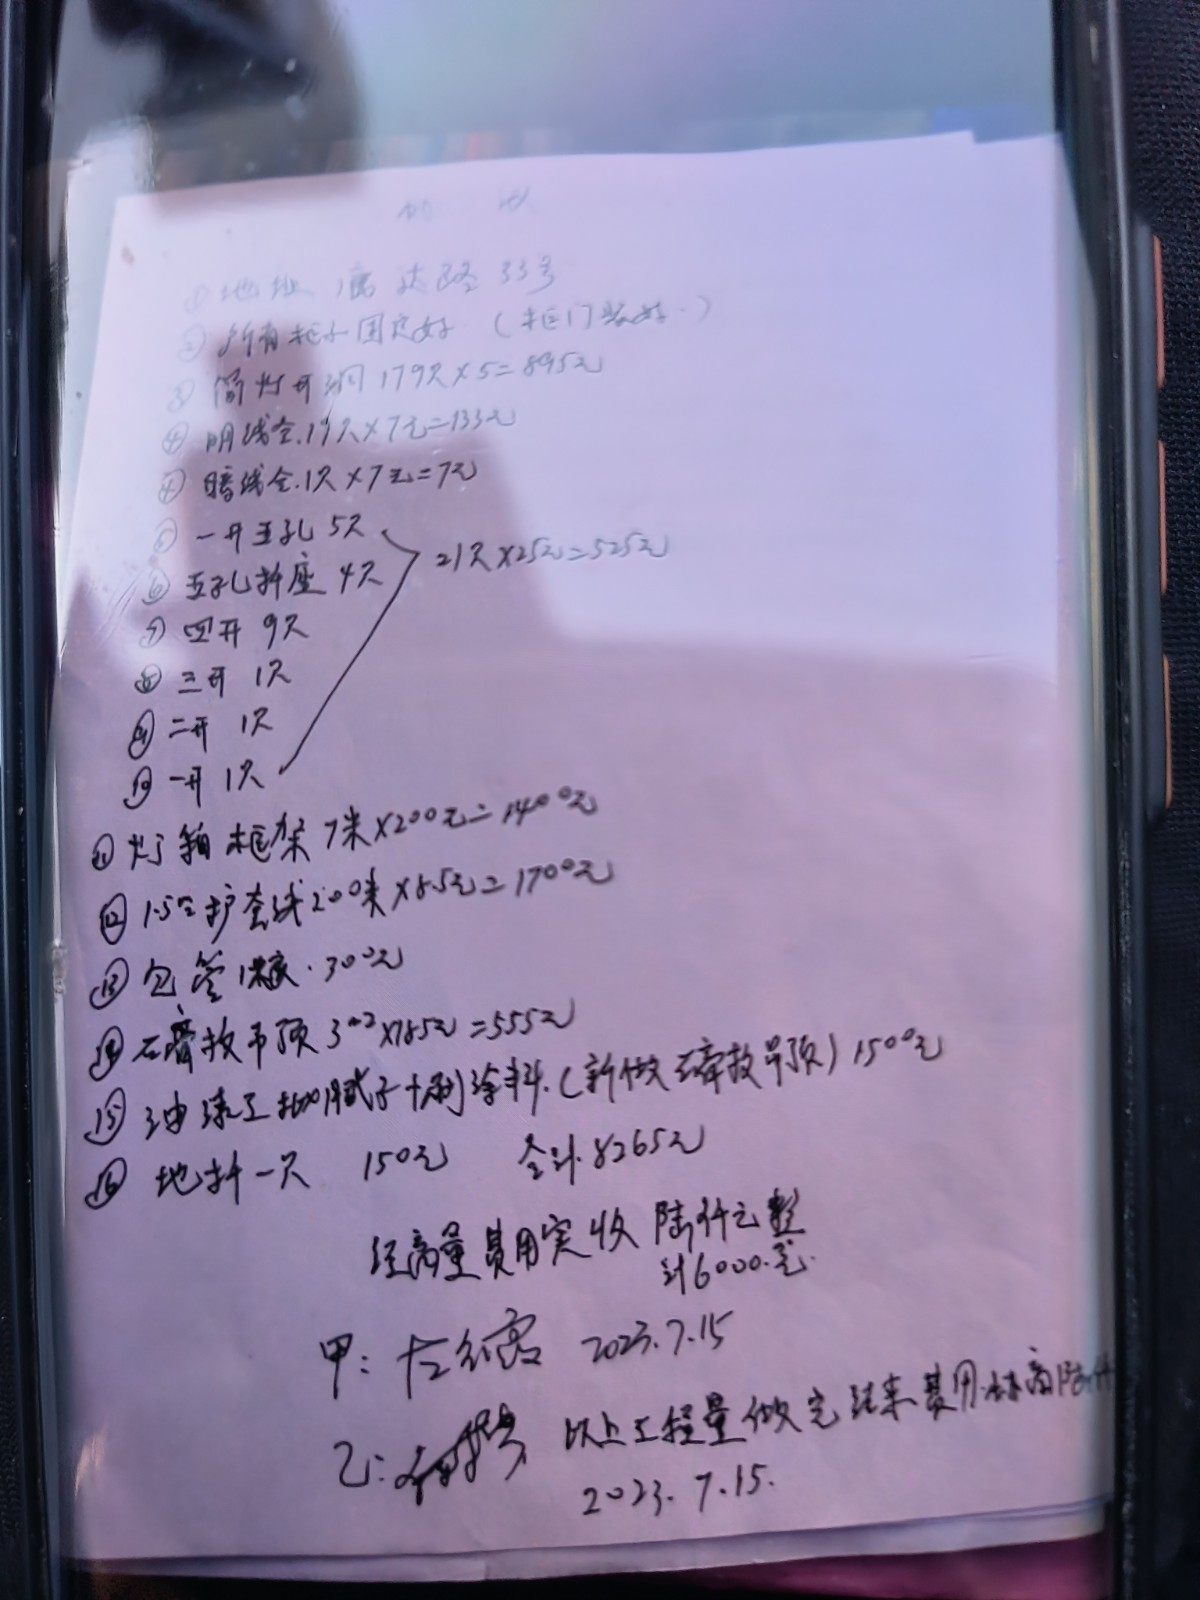 ① 地址 达路 33号
② 所有柜子固定好 (柜门装好.)
③ 筒灯开洞 179只×5=895元
④ 明线盒.19只×7元=133元
④ 暗线盒.1只×7元=7元
⑤ 一开五孔 5只
21只×25元=525元
⑥ 五孔插座 4只
⑦ 四开 9只
⑧ 三开 1只
⑨ 二开 1只
⑩ 一开 1只
⑪ 灯箱框架 7米×200元=1400元
⑫ 1.5公护套线200米×8.5元=1700元
⑬ 包管 300元
⑭ 石膏板吊顶 3m2×185元=555元
⑮ 油漆工批腻子+刷涂料.(新做石膏板吊顶) 1500元
⑯ 地插一只 150元 合计.8265元
经商量费用实收 陆仟元整
计6000.元.
甲: 2023.7.15
乙: 以上工程量做完结来费用
2023.7.15.